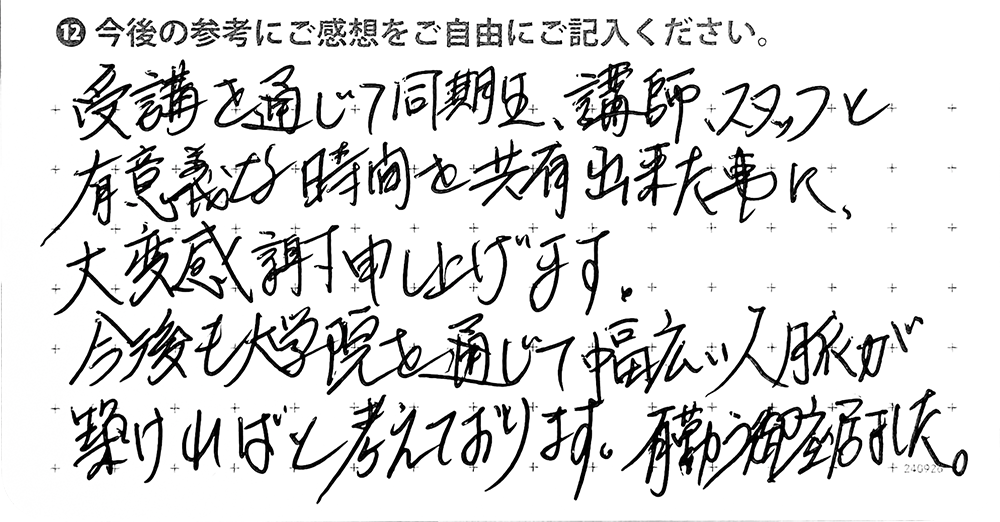 ⓬ 今後の参考にご感想をご自由にご記入ください。
受講を通じて同期生、講師、スタッフと
有意義な時間を共有出来た事に、
大変感謝申し上げます。
今後も大学院を通じて幅広い人脈が
築ければと考えております。有難う御座居ました。
240926